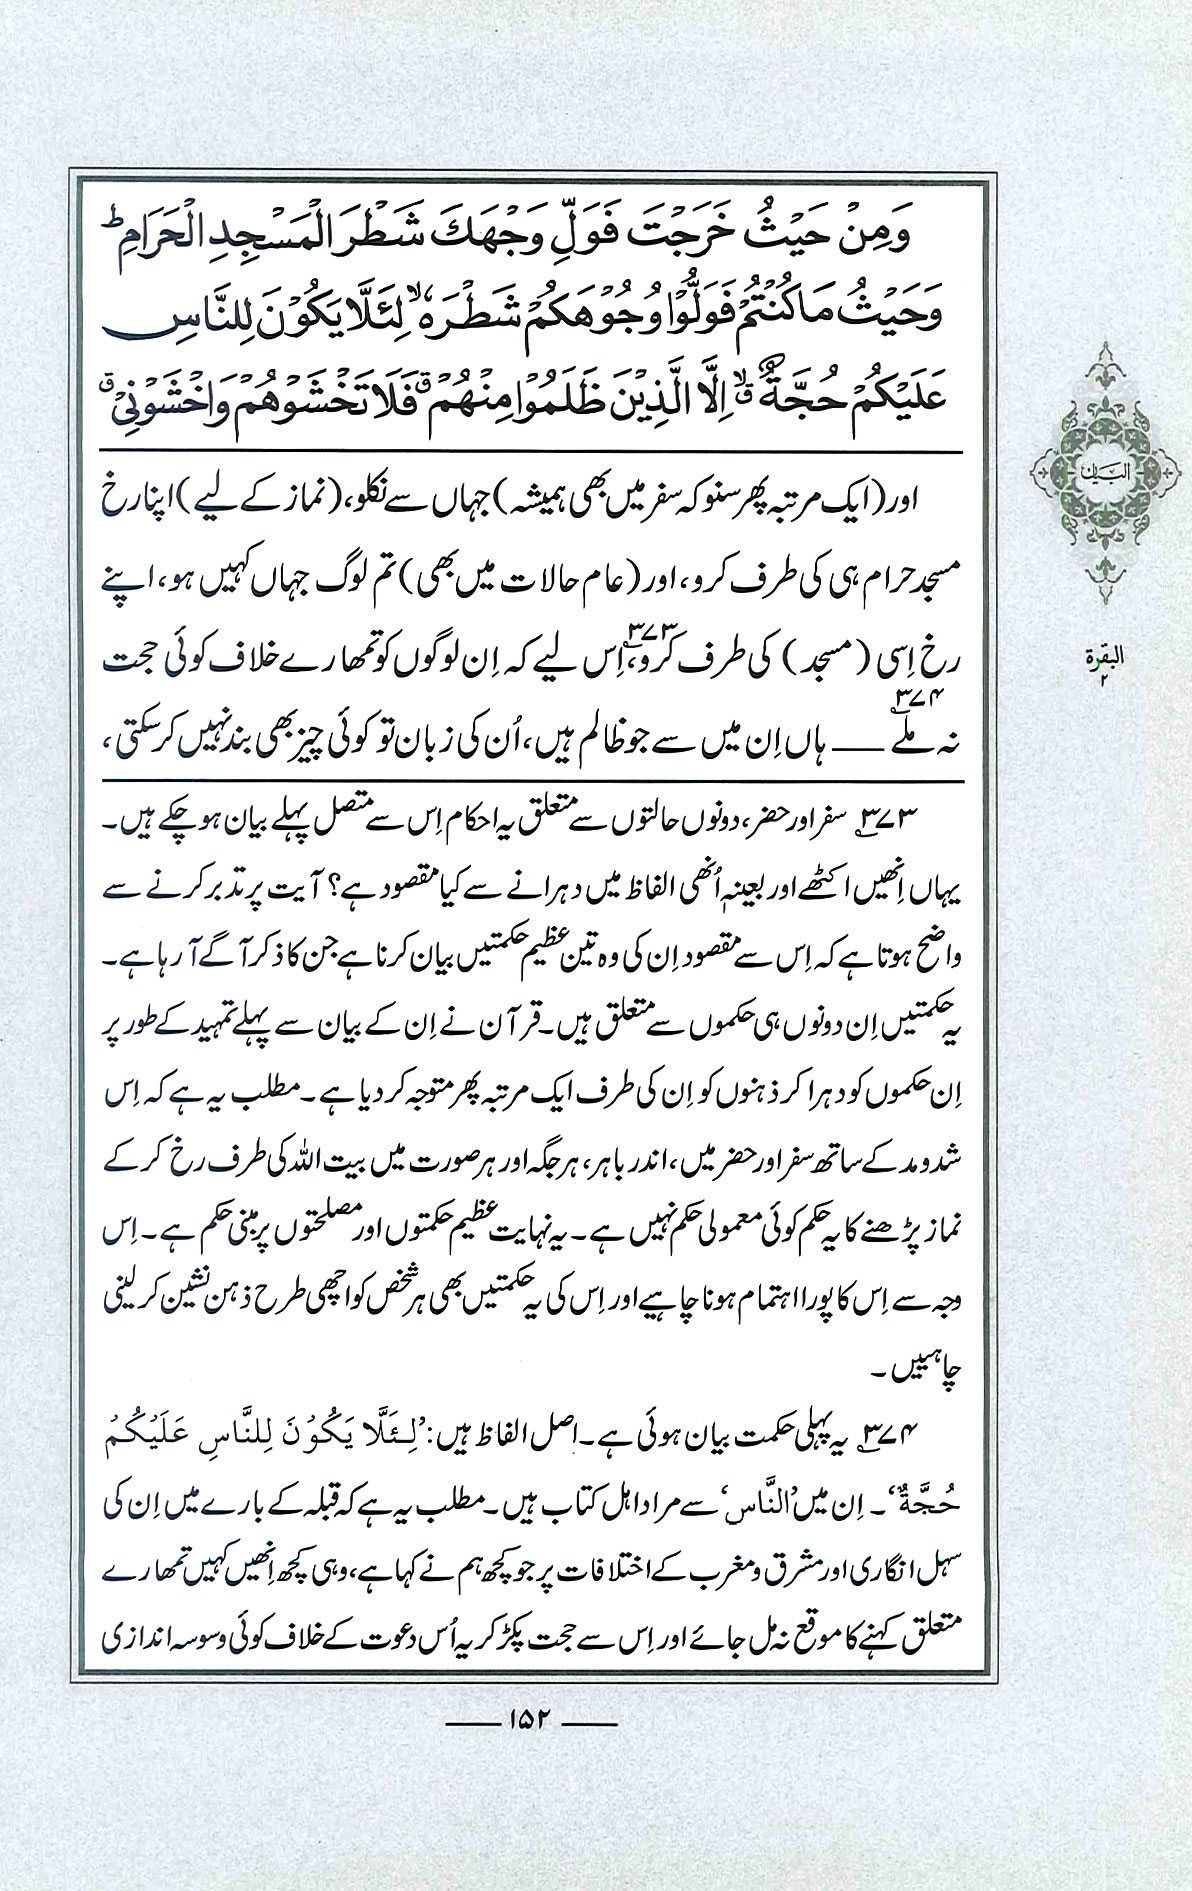 وَمِنْ حَيْثُ خَرَجْتَ فَوَلِّ وَجْهَكَ شَطْرَ الْمَسْجِدِ الْحَرَامِ ؕ
وَحَيْثُ مَا كُنْتُمْ فَوَلُّوْا وُجُوْهَكُمْ شَطْرَهٗ ۙ لِئَلَّا يَكُوْنَ لِلنَّاسِ
عَلَيْكُمْ حُجَّةٌ ۙۗ اِلَّا الَّذِيْنَ ظَلَمُوْا مِنْهُمْ ۗ فَلَا تَخْشَوْهُمْ وَاخْشَوْنِيْ ۗ
اور (ایک مرتبہ پھر سنو کہ سفر میں بھی ہمیشہ) جہاں سے نکلو، (نماز کے لیے) اپنا رخ
مسجد حرام ہی کی طرف کرو، اور (عام حالات میں بھی) تم لوگ جہاں کہیں ہو، اپنے
رخ اِسی (مسجد) کی طرف کرو،۳۷۳ اِس لیے کہ اِن لوگوں کو تمھارے خلاف کوئی حجت
نہ ملے۳۷۴ — ہاں اِن میں سے جو ظالم ہیں، اُن کی زبان تو کوئی چیز بھی بند نہیں کر سکتی،
۳۷۳ سفر اور حضر، دونوں حالتوں سے متعلق یہ احکام اِس سے متصل پہلے بیان ہو چکے ہیں۔
یہاں اِنھیں اکٹھے اور بعینہٖ اُنھی الفاظ میں دہرانے سے کیا مقصود ہے؟ آیت پر تدبر کرنے سے
واضح ہوتا ہے کہ اِس سے مقصود اِن کی وہ تین عظیم حکمتیں بیان کرنا ہے جن کا ذکر آگے آ رہا ہے۔
یہ حکمتیں اِن دونوں ہی حکموں سے متعلق ہیں۔ قرآن نے اِن کے بیان سے پہلے تمہید کے طور پر
اِن حکموں کو دہرا کر ذہنوں کو اِن کی طرف ایک مرتبہ پھر متوجہ کر دیا ہے۔ مطلب یہ ہے کہ اِس
شد و مد کے ساتھ سفر اور حضر میں، اندر باہر، ہر جگہ اور ہر صورت میں بیت اللہ کی طرف رخ کر کے
نماز پڑھنے کا یہ حکم کوئی معمولی حکم نہیں ہے۔ یہ نہایت عظیم حکمتوں اور مصلحتوں پر مبنی حکم ہے۔ اِس
وجہ سے اِس کا پورا اہتمام ہونا چاہیے اور اِس کی یہ حکمتیں بھی ہر شخص کو اچھی طرح ذہن نشین کر لینی
چاہییں۔
۳۷۴ یہ پہلی حکمت بیان ہوئی ہے۔ اصل الفاظ ہیں: ’لِئَلَّا يَكُوْنَ لِلنَّاسِ عَلَيْكُمْ
حُجَّةٌ‘۔ اِن میں ’النَّاس‘ سے مراد اہل کتاب ہیں۔ مطلب یہ ہے کہ قبلہ کے بارے میں اِن کی
سہل انگاری اور مشرق و مغرب کے اختلافات پر جو کچھ ہم نے کہا ہے، وہی کچھ اِنھیں کہیں تمھارے
متعلق کہنے کا موقع نہ مل جائے اور اِس سے حجت پکڑ کر یہ اُس دعوت کے خلاف کوئی وسوسہ اندازی
۱۵۲
البیان
البقرة
۲